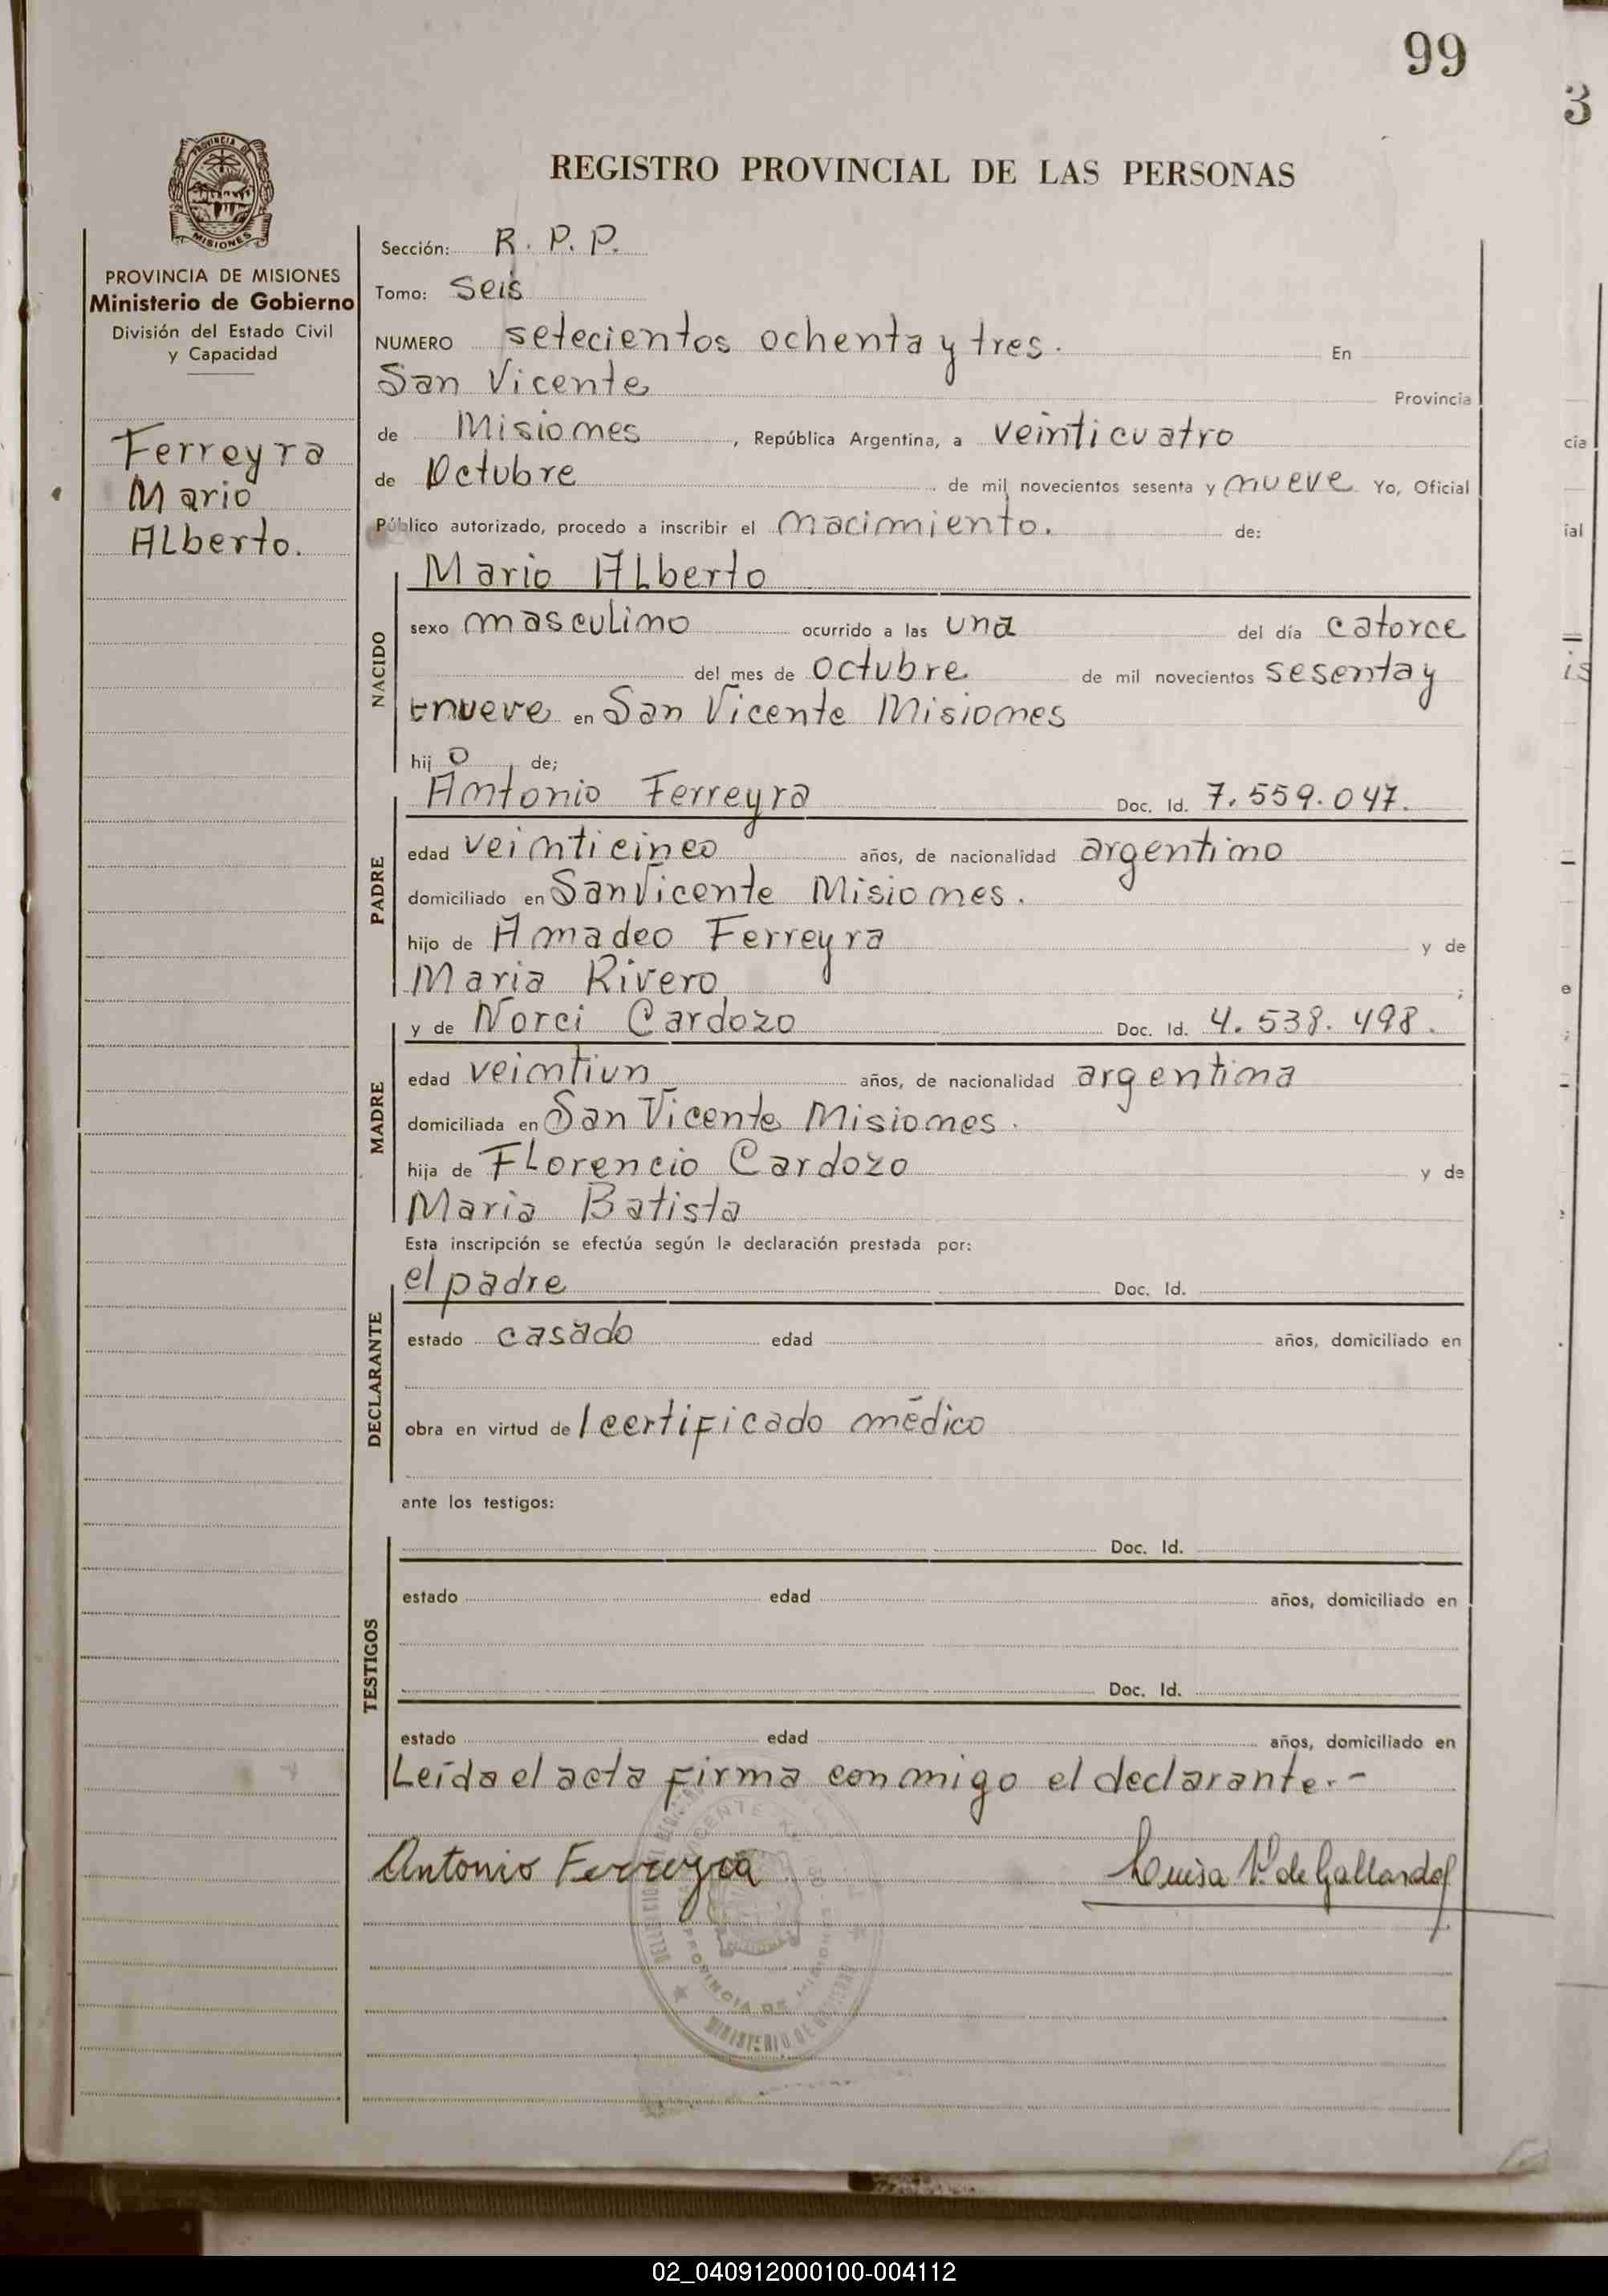 99
3
REGISTRO PROVINCIAL DE LAS PERSONAS
PROVINCIA DE
MISIONES
PROVINCIA DE MISIONES
Ministerio de Gobierno
División del Estado Civil
y Capacidad
Ferreyra
Mario
ALberto.
Sección: R. P. P.
Tomo: Seis
NUMERO setecientos ochenta y tres. En
San Vicente Provincia
de Misiones, República Argentina, a veinticuatro
de Octubre de mil novecientos sesenta y nueve Yo, Oficial
Público autorizado, procedo a inscribir el nacimiento. de:
NACIDO
Mario ALberto
sexo masculino ocurrido a las una del día catorce
del mes de octubre de mil novecientos sesenta y
nueve en San Vicente Misiones
hij o de;
PADRE
Antonio Ferreyra Doc. Id. 7.559.047.
edad veinticinco años, de nacionalidad argentino
domiciliado en San Vicente Misiones.
hijo de Amadeo Ferreyra y de
Maria Rivero ;
MADRE
y de Norci Cardozo Doc. Id. 4.538.498.
edad veintiun años, de nacionalidad argentina
domiciliada en San Vicente Misiones.
hija de FLorencio Cardozo y de
Maria Batista
Esta inscripción se efectúa según la declaración prestada por:
DECLARANTE
el padre Doc. Id.
estado casado edad años, domiciliado en
obra en virtud de l certificado médico
ante los testigos:
TESTIGOS
Doc. Id.
estado edad años, domiciliado en
Doc. Id.
estado edad años, domiciliado en
Leída el acta firma conmigo el declarante.-
Antonio Ferreyra Luisa V. de Gallardo
PROVINCIA DE MISIONES
MINISTERIO DE
02_040912000100-004112